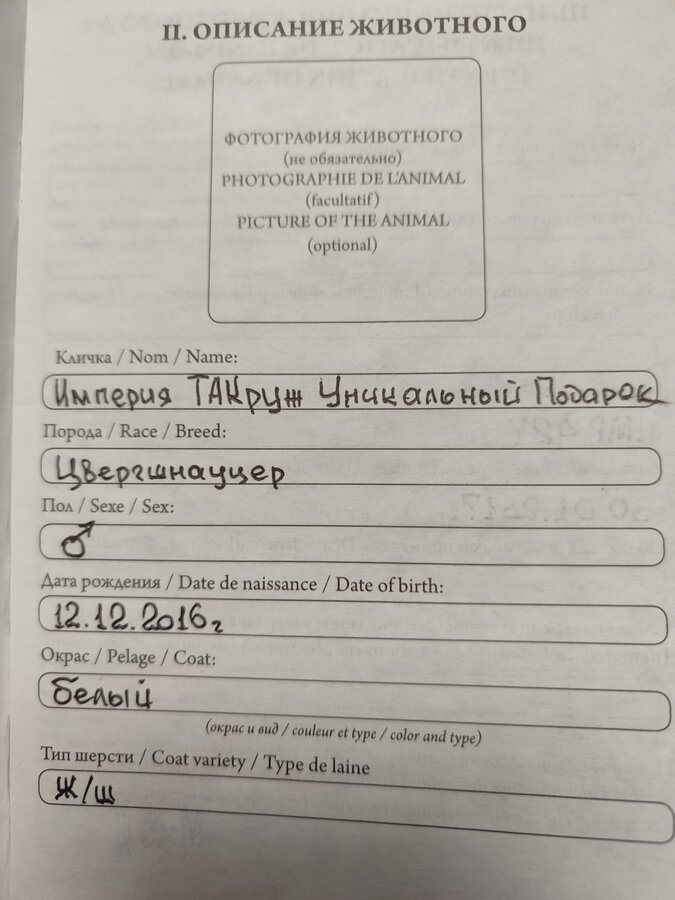 II. ОПИСАНИЕ ЖИВОТНОГО
ФОТОГРАФИЯ ЖИВОТНОГО
(не обязательно)
PHOTOGRAPHIE DE L'ANIMAL
(facultatif)
PICTURE OF THE ANIMAL
(optional)
Кличка / Nom / Name:
Империя ТАКруж Уникальный Подарок
Порода / Race / Breed:
Цвергшнауцер
Пол / Sexe / Sex:
♂
Дата рождения / Date de naissance / Date of birth:
12.12.2016г
Окрас / Pelage / Coat:
белый
(окрас и вид / couleur et type / color and type)
Тип шерсти / Coat variety / Type de laine
Ж/ш